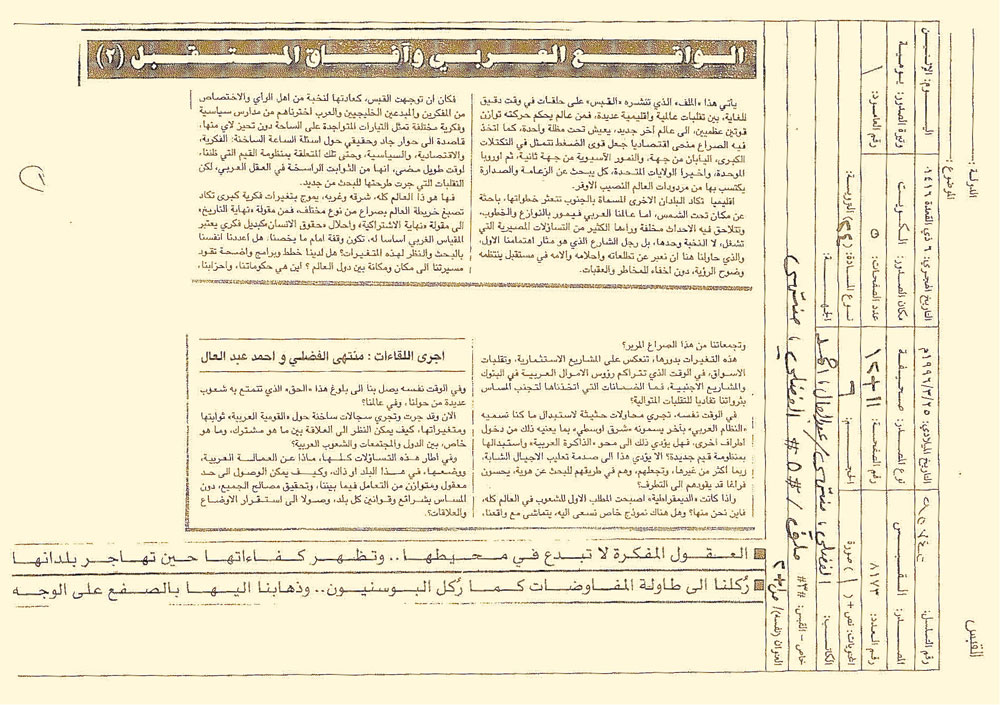 الواقع العربي وآفاق المستقبل (٢)
يأتي هذا «الملف» الذي تنشره «القبس» على حلقات في وقت دقيق
للغاية، بين تقلبات عالمية واقليمية عديدة، فمن عالم يحكم حركته توازن
قوتين عظميين، الى عالم آخر جديد، يعيش تحت مظلة واحدة، كما اتخذ
فيه الصراع منحى اقتصاديا جعل قوى الضغط تتمثل في التكتلات
الكبرى، اليابان من جهة، والنمور الآسيوية من جهة ثانية، ثم اوروبا
الموحدة، واخيرا الولايات المتحدة، كل يبحث عن الزعامة والصدارة
يكتسب بها من مردودات العالم النصيب الاوفر.
اقليميا تكاد البلدان الاخرى المسماة بالجنوب تتعثر خطواتها، باحثة
عن مكان تحت الشمس، اما عالمنا العربي فيمور بالنوازع والخطوب،
وتتلاحق فيه الاحداث مخلفة وراءها الكثير من التساؤلات المصيرية التي
تشغل، لا النخبة وحدها، بل رجل الشارع الذي هو مثار اهتمامنا الاول،
والذي حاولنا هنا ان نعبر عن تطلعاته واحلامه وآلامه في مستقبل ينتظمه
وضوح الرؤية، دون اخفاء للمخاطر والعقبات.
فكان ان توجهت القبس، كعادتها لنخبة من اهل الرأي والاختصاص
من المفكرين والمبدعين الخليجيين والعرب اخترناهم من مدارس سياسية
وفكرية مختلفة تمثل التيارات المتواجدة على الساحة دون تحيز لاي منها،
قاصدة الى حوار جاد وحقيقي حول اسئلة الساعة الساخنة: الفكرية،
والاقتصادية، والسياسية، وحتى تلك المتعلقة بمنظومة القيم التي ظلنا،
لوقت طويل مضى، انها من الثوابت الراسخة في العقل العربي، لكن
التقلبات التي جرت طرحتها للبحث من جديد.
فها هو ذا العالم كله، شرقه وغربه، يموج بتغيرات فكرية كبرى تكاد
تصبغ خريطة العالم بصراع من نوع مختلف، فمن مقولة «نهاية التاريخ»
الى مقولة «نهاية الاشتراكية»، واحلال «حقوق الانسان» كبديل فكري يعتبر
القياس الغربي اساسا له، تكون وقفة امام ما يخصنا. هل اعددنا انفسنا
بالبحث والنظر لهذه المتغيرات؟ هل لدينا خطط وبرامج واضحة تقود
مسيرتنا الى مكان ومكانة بين دول العالم ؟ اين هي حكوماتنا، واحزابنا،
وتجمعاتنا من هذا الصراع المرير؟
هذه التغيرات بدورها، تنعكس على المشاريع الاستثمارية، وتقلبات
الاسواق، في الوقت الذي تتراكم رؤوس الاموال العربية في البنوك
والمشاريع الاجنبية، فما الضمانات التي اتخذناها لتجنب المساس
بثرواتنا تفاديا للتقلبات المتوالية؟
في الوقت نفسه، تجري محاولات حثيثة لاستبدال ما كنا نسميه
«النظام العربي» بآخر يسمونه «شرق اوسطي» بما يعنيه ذلك من دخول
اطراف اخرى. فهل يؤدي ذلك الى محو «الذاكرة العربية» واستبدالها
بمنظومة قيم جديدة؟ الا يؤدي هذا الى صدمة تعايب الاجيال الشابة،
ربما اكثر من غيرها، وتجعلهم، وهم في طريقهم للبحث عن هوية، يحسون
فراغا قد يقودهم الى التطرف؟
واذا كانت «الديمقراطية» اصبحت المطلب الاول للشعوب في العالم كله،
فأين نحن منها؟ وهل هناك نموذج خاص نسعى اليه، يتماشى مع واقعنا،
اجرى اللقاءات : منتهى الفضلي و احمد عبد العال
وفي الوقت نفسه يصل بنا الى بلوغ هذا «الحق» الذي تتمتع به شعوب
عديدة من حولنا، وفي عالمنا؟
الان وقد جرت وتجري سجالات ساخنة حول «القومية العربية» ثوابتها
ومتغيراتها، كيف يمكن النظر الى العلاقة بين ما هو مشترك، وما هو
خاص، بين الدول والمجتمعات والشعوب العربية؟
وفي اطار هذه التساؤلات كلها، ماذا عن العمالة العربية،
ووضعها، في هذا البلد او ذاك، وكيف يمكن الوصول الى حد
معقول ومتوازن من التعامل فيما بيننا، وتحقيق مصالح الجميع، دون
المساس بشرائع وقوانين كل بلد، وصولا الى استقرار الاوضاع
والعلاقات؟.
العقول المفكرة لا تبدع في محيطها.. وتظهر كفاءاتها حين تهاجر بلدانها
رُكلنا الى طاولة المفاوضات كما رُكل البوسنيون.. وذهابنا اليها بالصفع على الوجه
القبس
الدولة:
الموضوع:
اليوم: الاثنين التاريخ الهجري: ٦ ذي القعدة ١٤١٦ التاريخ الميلادي: ١٩٩٦/٣/٢٥م رقم التسلسل:
وتيرة الصدور: يومية مكان الصدور: الكويت نوع المصدر: صحيفة المصدر: القبس
رقم العامود: ١ عدد الصفحات: ٥ رقم الصفحة: ١١+١٢ رقم العدد: ٨١٧٣
نوع المادة: الدورية: م: ٦ المحتويات: نص + (١) صورة
الجهة: الكاتب: الفضلي، منتهى / عبدالعال، احمد
خاص - القبس: #٣# ملف / #٥# الفضلي، منتهى
العنوان (نفسه) /